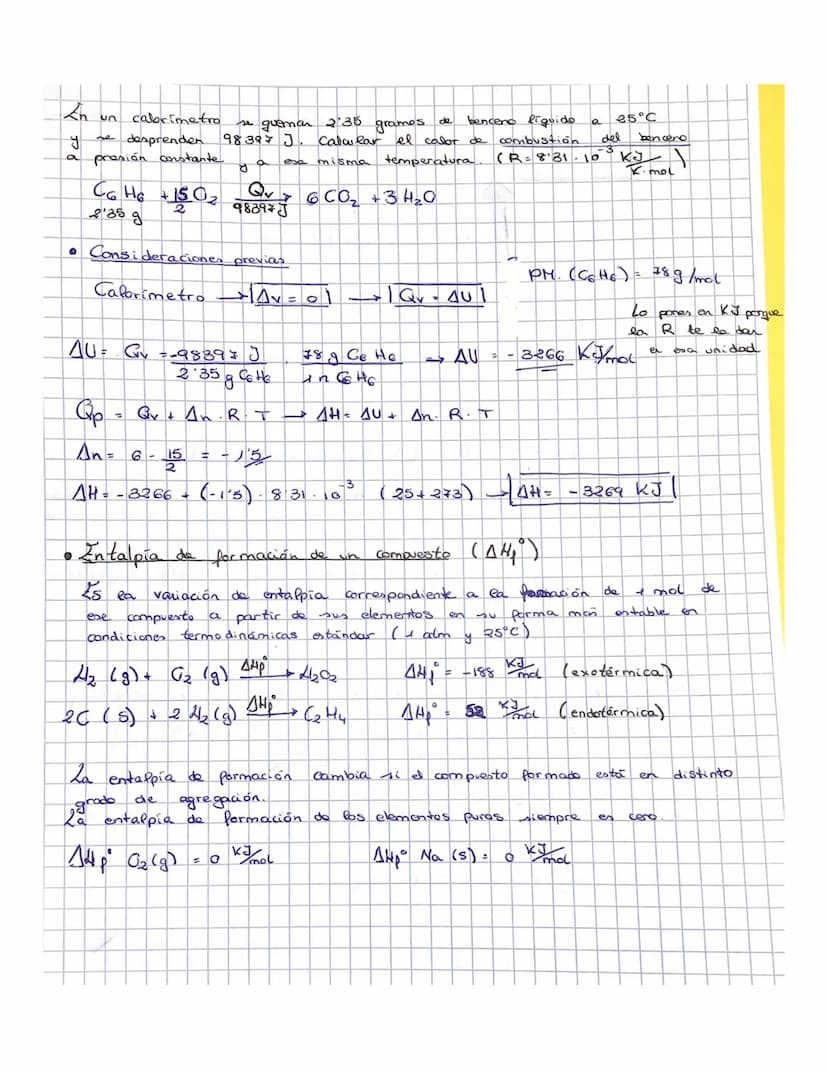 En un calorímetro se queman 2'35 gramos de benceno líquido a 25°C
y se desprenden 98397 J. Calcular el calor de combustión del benceno
a presión constante y a esa misma temperatura. (R = 8'31 · 10⁻³ KJ/K·mol)
C₆H₆ + 15/2 O₂ →(Qv / 98397 J) 6 CO₂ + 3 H₂O
2'35 g
• Consideraciones previas
PM. (C₆H₆) = 78 g/mol
Calorímetro → |Δv = 0| → |Qv = ΔU|
Lo pones en KJ porque
la R te la dan
en esa unidad
ΔU = Qv = -98397 J / 2'35 g C₆H₆ · 78 g C₆H₆ / 1 n C₆H₆ → ΔU = -3266 KJ/mol
Qp = Qv + Δn · R · T → ΔH = ΔU + Δn · R · T
Δn = 6 - 15/2 = -1'5
ΔH = -3266 + (-1'5) · 8'31 · 10⁻³ (25+273) → |ΔH = -3269 KJ|
• Entalpía de formación de un compuesto (ΔHf°)
Es la variación de entalpía correspondiente a la formación de 1 mol de
ese compuesto a partir de sus elementos en su forma más estable en
condiciones termodinámicas estándar (1 atm y 25°C)
H₂ (g) + O₂ (g) →(ΔHf°) H₂O₂ ΔHf° = -188 KJ/mol (exotérmica)
2C (s) + 2 H₂(g) →(ΔHf°) C₂H₄ ΔHf° = 52 KJ/mol (endotérmica)
La entalpía de formación cambia si el compuesto formado está en distinto
grado de agregación.
La entalpía de formación de los elementos puros siempre es cero.
ΔHf° O₂(g) = 0 KJ/mol ΔHf° Na (s) = 0 KJ/mol